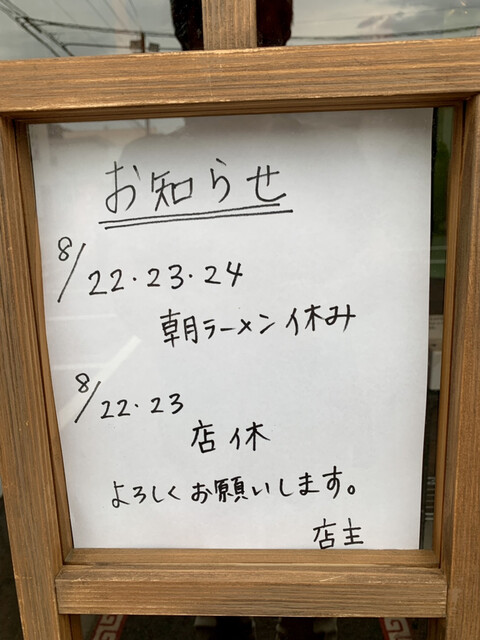 お知らせ
8/22・23・24
朝ラーメン休み
8/22・23
店休
よろしくお願いします。
店主